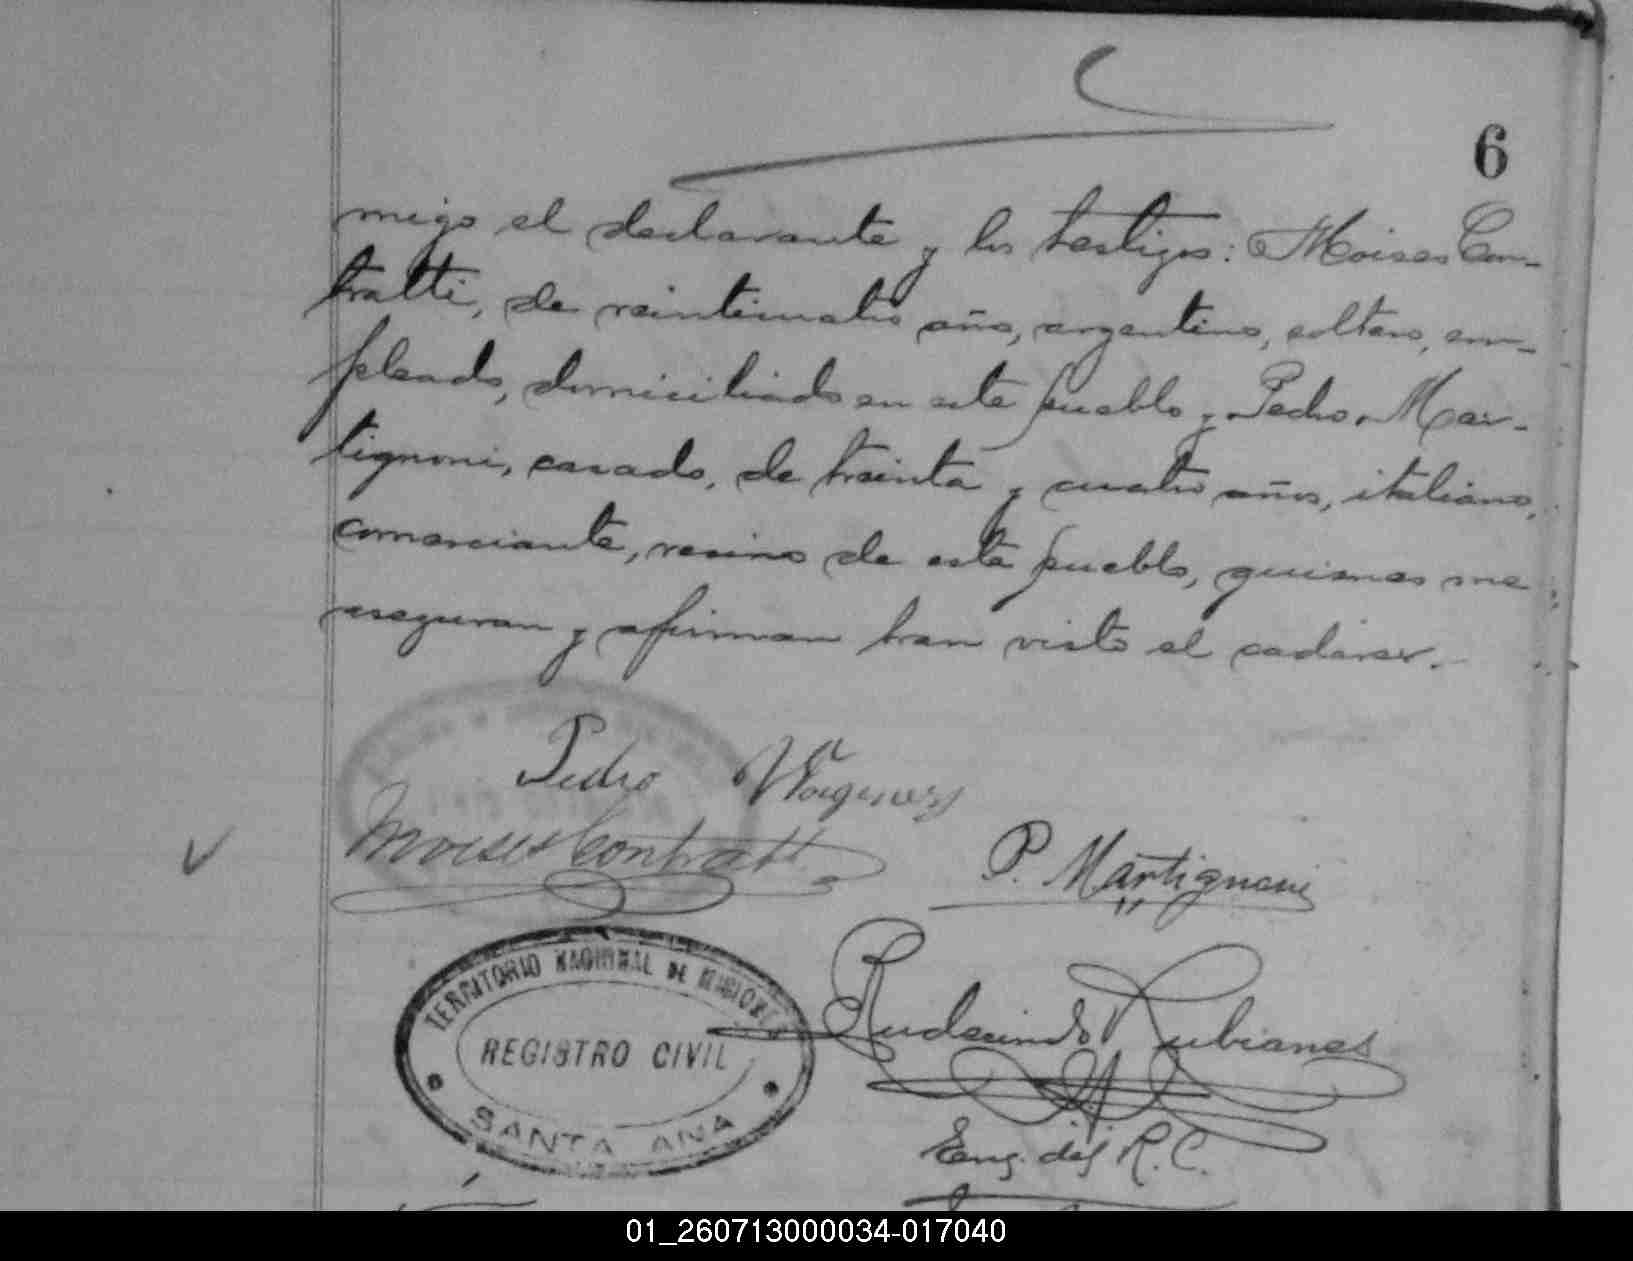 6
migo el declarante y los testigos: Moises Con-
tratti, de veinticuatro años, argentino, soltero, em-
pleado, domiciliado en este pueblo y Pedro Mar-
tignoni, casado, de treinta y cuatro años, italiano,
comerciante, vecino de este pueblo, quienes me
aseguran y afirman han visto el cadáver.
Pedro
Moises Contratti
P. Martignoni
TERRITORIO NACIONAL DE MISIONES
REGISTRO CIVIL
SANTA ANA
Rudecindo Rubianes
Eng. del R. C.
01_260713000034-017040